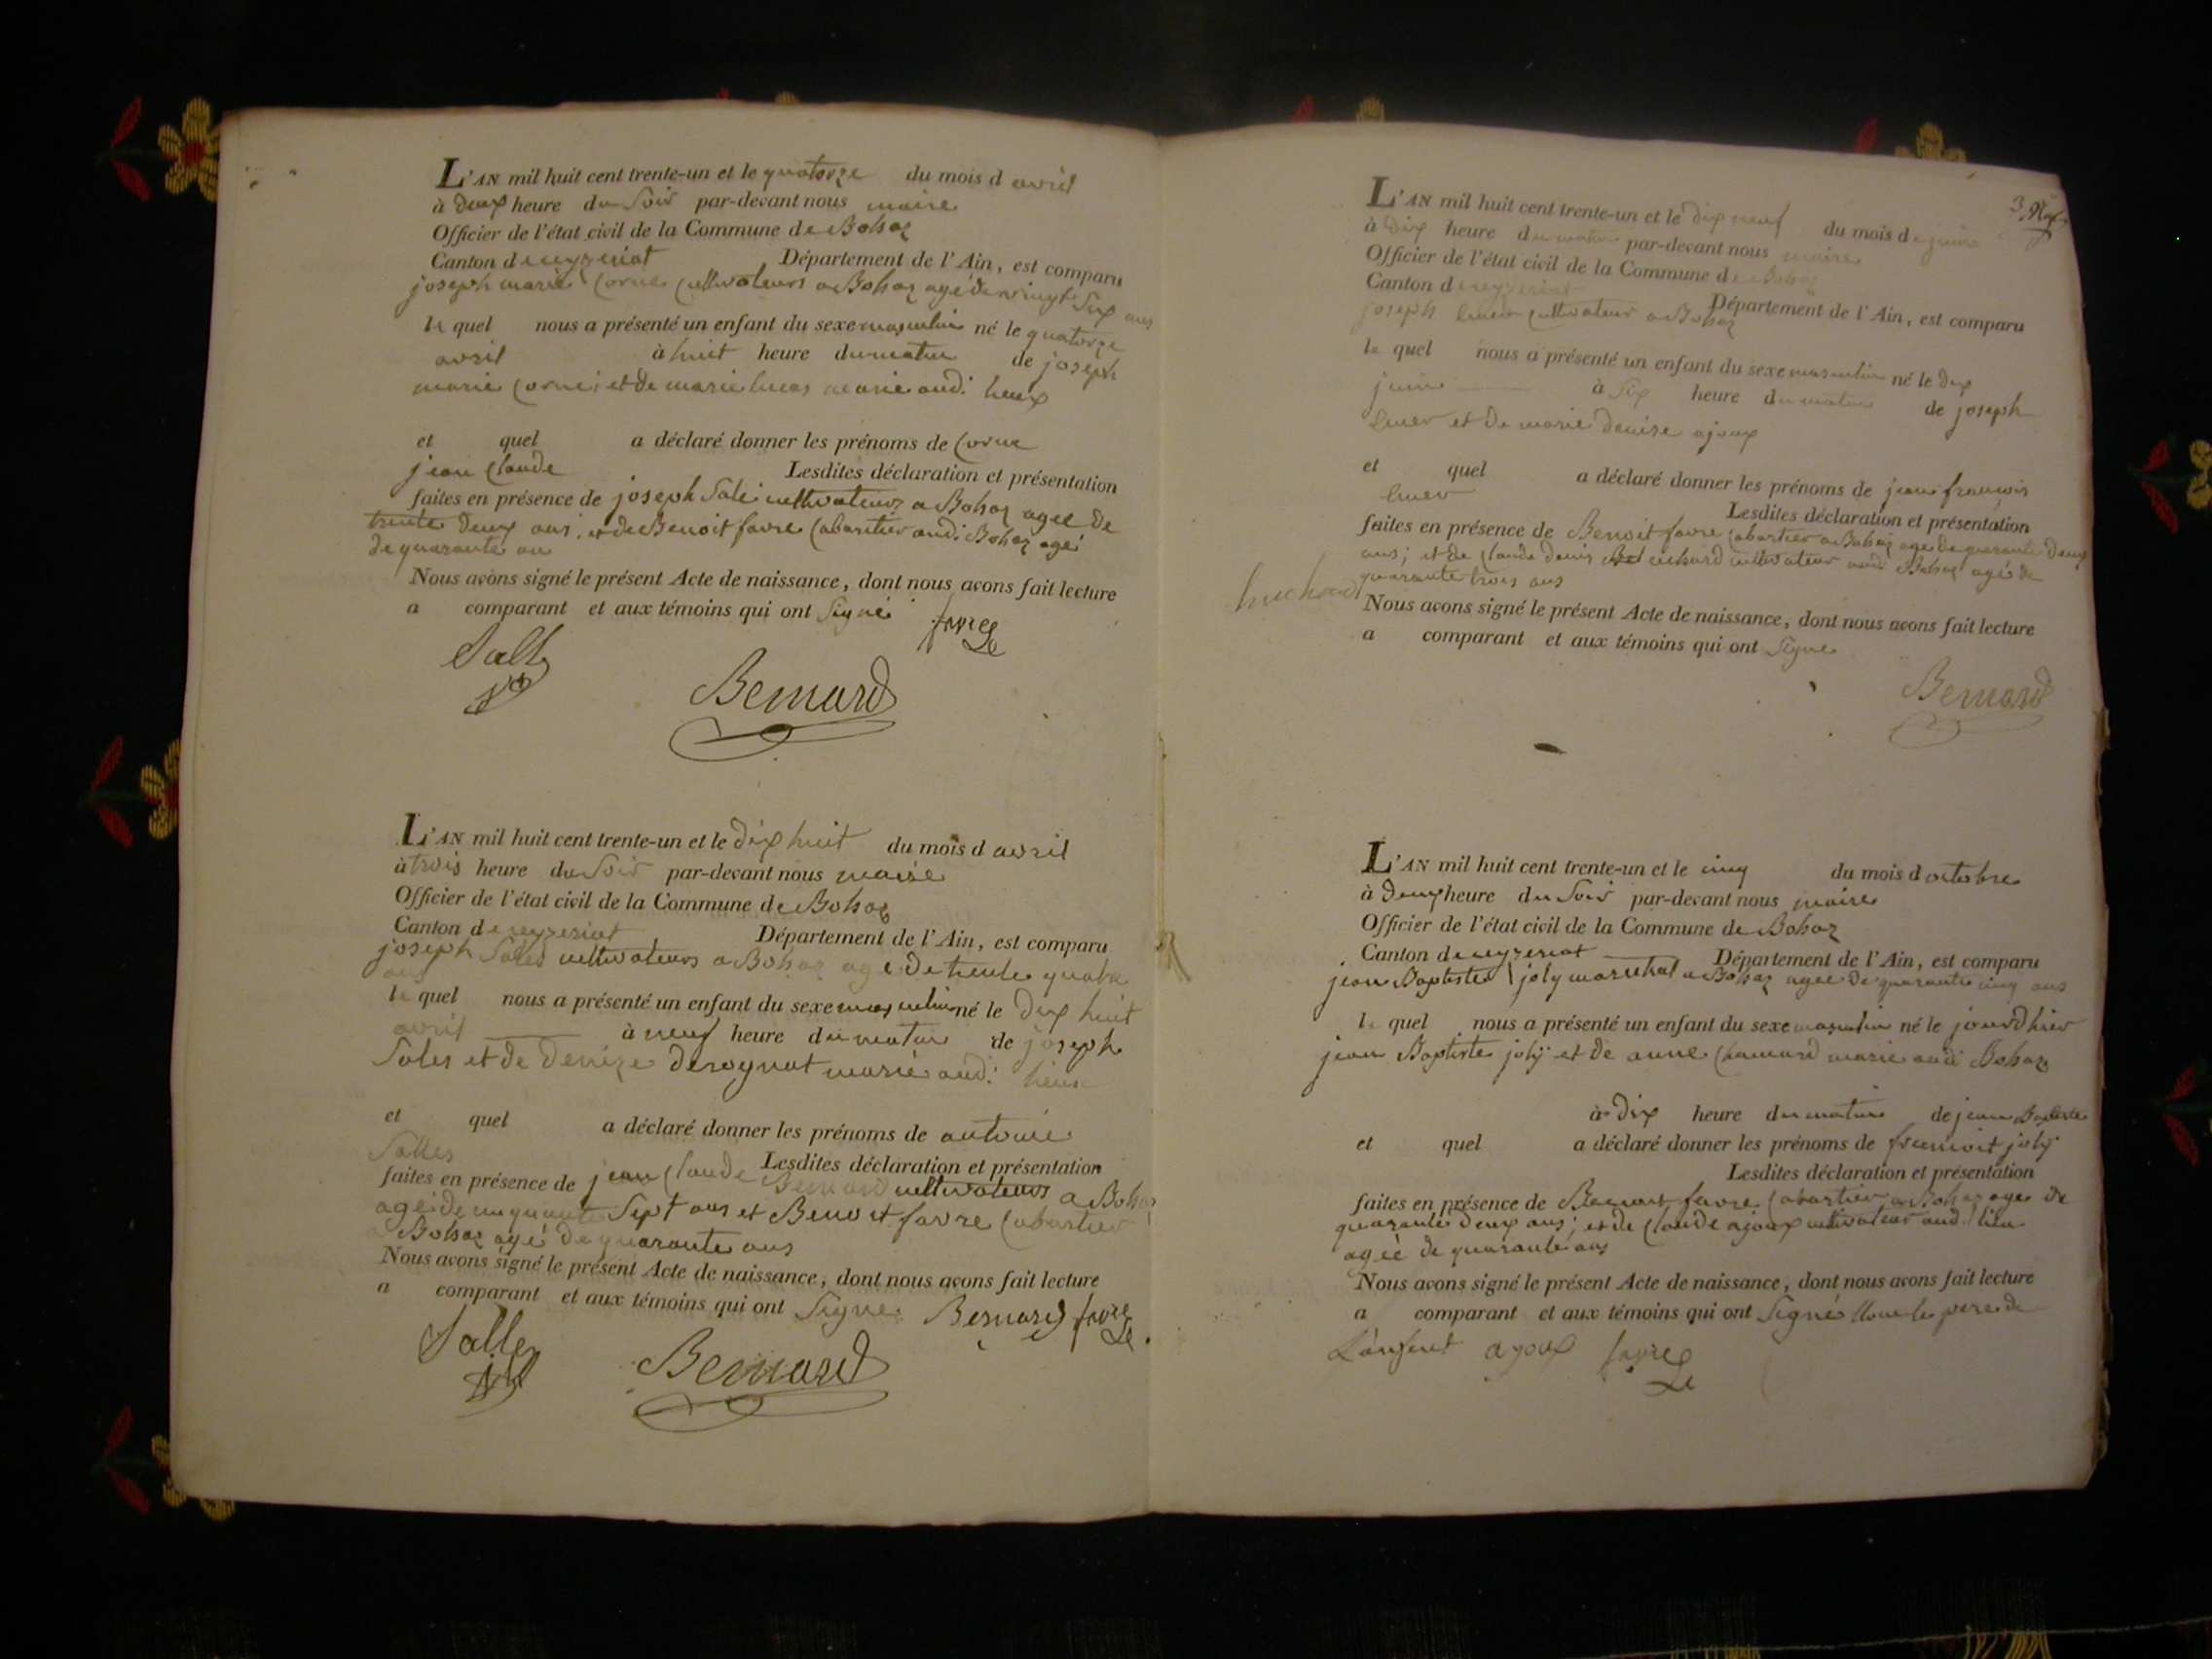 L'AN mil huit cent trente-un et le quatorze du mois d avril
à deux heure du Soir par-devant nous maire
Officier de l'état civil de la Commune de Bohaz
Canton de ceyzeriat Département de l'Ain, est comparu
joseph marie Corne cultivateurs a Bohaz agé de vingt Six ans
le quel nous a présenté un enfant du sexe masculin né le quatorze
avril à huit heure du matin de joseph
marie Corne; et de marie lucas marié audi lieux
et quel a déclaré donner les prénoms de Corne
jean Claude Lesdites déclaration et présentation
faites en présence de joseph Sale cultivateurs a Bohaz agee de
trente deux ans; et de Benoit favre Cabaretier audi Bohaz agé
de quarante an
Nous avons signé le présent Acte de naissance, dont nous avons fait lecture
a comparant et aux témoins qui ont Signé favre
Salle
Bernard
L'AN mil huit cent trente-un et le dix huit du mois d avril
à trois heure du Soir par-devant nous maire
Officier de l'état civil de la Commune de Bohaz
Canton de ceyzeriat Département de l'Ain, est comparu
joseph Sales cultivateurs a Bohaz agé de trente quatre
ans
le quel nous a présenté un enfant du sexe masculin né le dix huit
avril à neuf heure du matin de joseph
Sales et de Denize derognat marié audi lieux
et quel a déclaré donner les prénoms de antoine
Salles Lesdites déclaration et présentation
faites en présence de jean Claude Bernard cultivateurs a Bohaz
agé de cinquante Sept ans et Benoit favre Cabartier
a Bohaz agé de quarante ans
Nous avons signé le présent Acte de naissance, dont nous avons fait lecture
a comparant et aux témoins qui ont Signe Bernard favre
Salles
Bernard
3
L'AN mil huit cent trente-un et le dix neuf du mois de juin
à dix heure du matin par-devant nous maire
Officier de l'état civil de la Commune de Bohaz
Canton de ceyzeriat Département de l'Ain, est comparu
joseph cultivateur a Bohaz
le quel nous a présenté un enfant du sexe masculin né le dix
juin à Six heure du matin de joseph
et de marie denise ajoux
et quel a déclaré donner les prénoms de jean francois
Lesdites déclaration et présentation
faites en présence de Benoit favre Cabartier a Bohaz age de quarante deux
ans; et de Claude denis cultivateur audi Bohaz agé de
quarante trois ans
Nous avons signé le présent Acte de naissance, dont nous avons fait lecture
a comparant et aux témoins qui ont Signe
Bernard
L'AN mil huit cent trente-un et le cinq du mois d octobre
à deux heure du Soir par-devant nous maire
Officier de l'état civil de la Commune de Bohaz
Canton de ceyzeriat Département de l'Ain, est comparu
jean Baptiste joly marechal a Bohaz agee de quarante cinq ans
le quel nous a présenté un enfant du sexe masculin né le jourdhier
jean Baptiste joly et de anne Chanard marie audi Bohaz
à dix heure du matin de jean Baptiste
et quel a déclaré donner les prénoms de joly
Lesdites déclaration et présentation
faites en présence de Benoit favre Cabartier a Bohaz age de
quarante deux ans; et de Claude ajoux cultivateur aud. lieu
agée de quarante ans
Nous avons signé le présent Acte de naissance, dont nous avons fait lecture
a comparant et aux témoins qui ont Signé le pere de
L'enfent ajoux favre